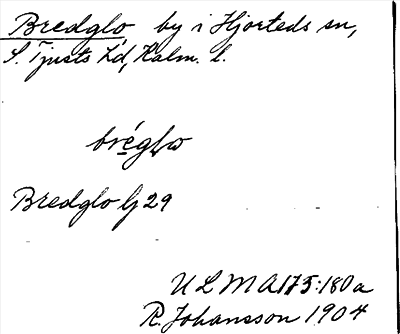 Bredglo by i Hjorteds sn,
S. Tjusts hd, Kalm. l.
bréglω
Bredglo lj 29
ULMA 175:180a
R. Johansson 1904